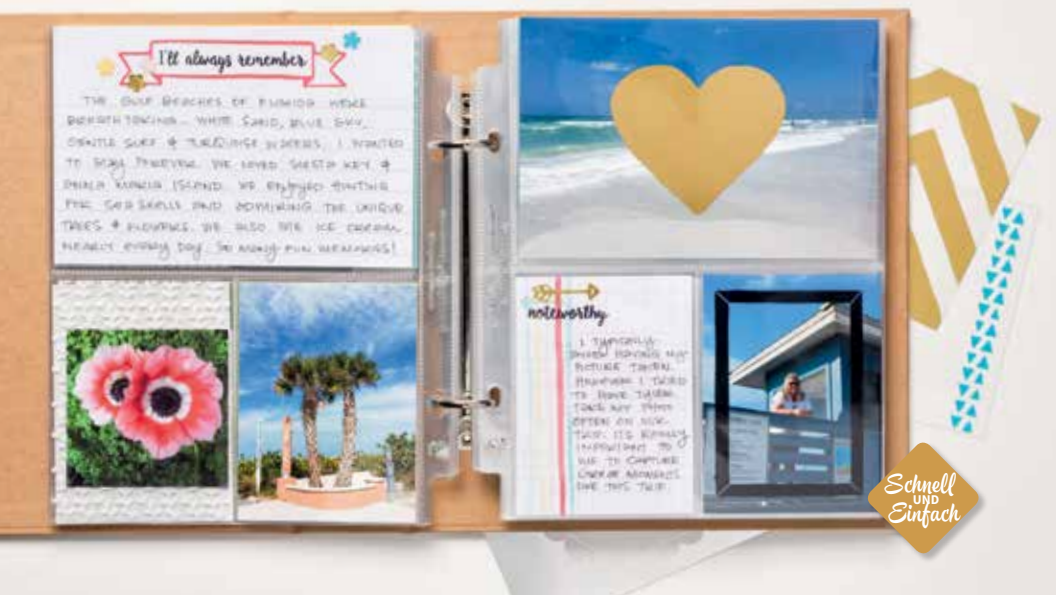 I'll always remember
THE GULF BEACHES OF FLORIDA WERE
BREATHTAKING. WHITE SAND, BLUE SKY,
GENTLE SURF & TURQUOISE WATERS. I WANTED
TO STAY FOREVER. WE LOVED SIESTA KEY &
ANNA MARIA ISLAND. WE ENJOYED HUNTING
FOR SEASHELLS AND ADMIRING THE UNIQUE
TREES & FLOWERS. WE ALSO ATE ICE CREAM
NEARLY EVERY DAY. SO MANY FUN MEMORIES!
noteworthy
I TYPICALLY
HAVING MY
PICTURE TAKEN.
HOWEVER I TRIED
TO HAVE THEM
TAKE MY PHOTO
OFTEN ON OUR
TRIP. IT'S REALLY
IMPORTANT TO
ME TO CAPTURE
MOMENTS
LIKE THIS TRIP.
Schnell
UND
Einfach